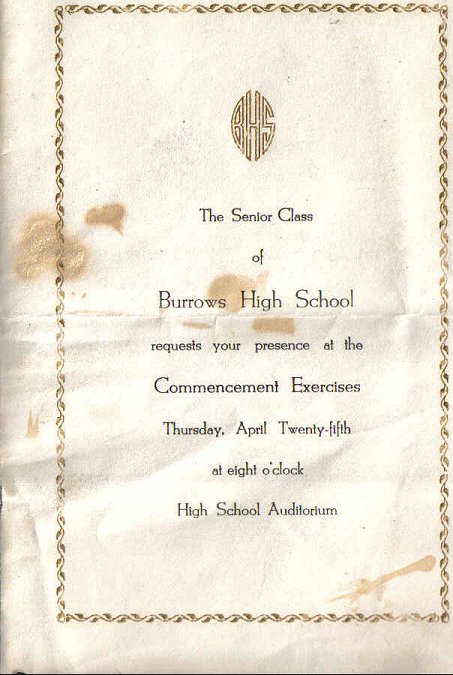 BHS
The Senior Class
of
Burrows High School
requests your presence at the
Commencement Exercises
Thursday, April Twenty-fifth
at eight o'clock
High School Auditorium